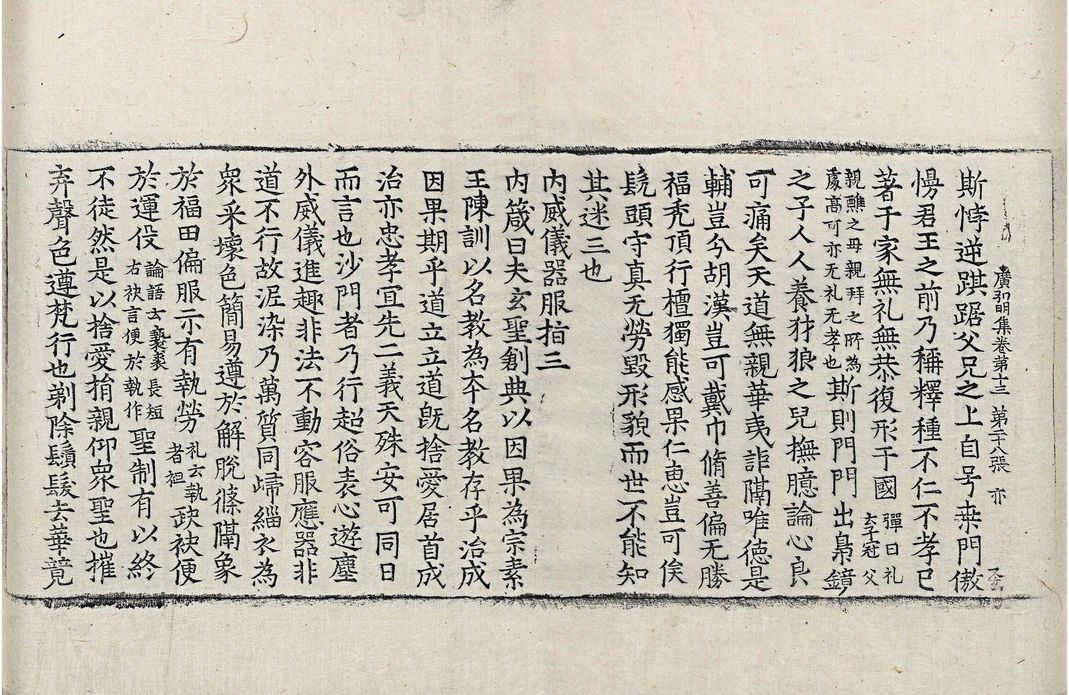 廣弘明集卷第十三　第二十八張　亦
斯悖逆踑踞父兄之上自号桒門傲
慢君王之前乃稱釋種不仁不孝已
著于家無礼無恭復形于國彈曰礼云冠父
親醮之母親拜之所為處高可亦无礼无孝也斯則門門出梟鏡
之子人人養犲狼之兒撫臆論心良
可痛矣天道無親華夷詎隔唯徳是
輔豈兮胡漢豈可戴巾脩善偏无勝
福秃頂行檀獨能感果仁惠豈可俟
髡頭守真无勞毀形貌而世不能知
其迷三也
内威儀器服指三
内箴曰夫玄聖創典以因果為宗素
王陳訓以名教為本名教存乎治成
因果期乎道立立道旣捨愛居首成
治亦忠孝宜先二義天殊安可同日
而言也沙門者乃行超俗表心遊塵
外威儀進趣非法不動容服應器非
道不行故泥染乃萬質同歸緇衣為
衆采壞色簡易遵於解脫條隔象
於福田偏服示有執勞礼云執者袒缺袂便
於運役論語云褻裘長短右袂言便於執作聖制有以終
不徒然是以捨愛捐親仰衆聖也摧
弃聲色遵梵行也剃除鬚髮去華競